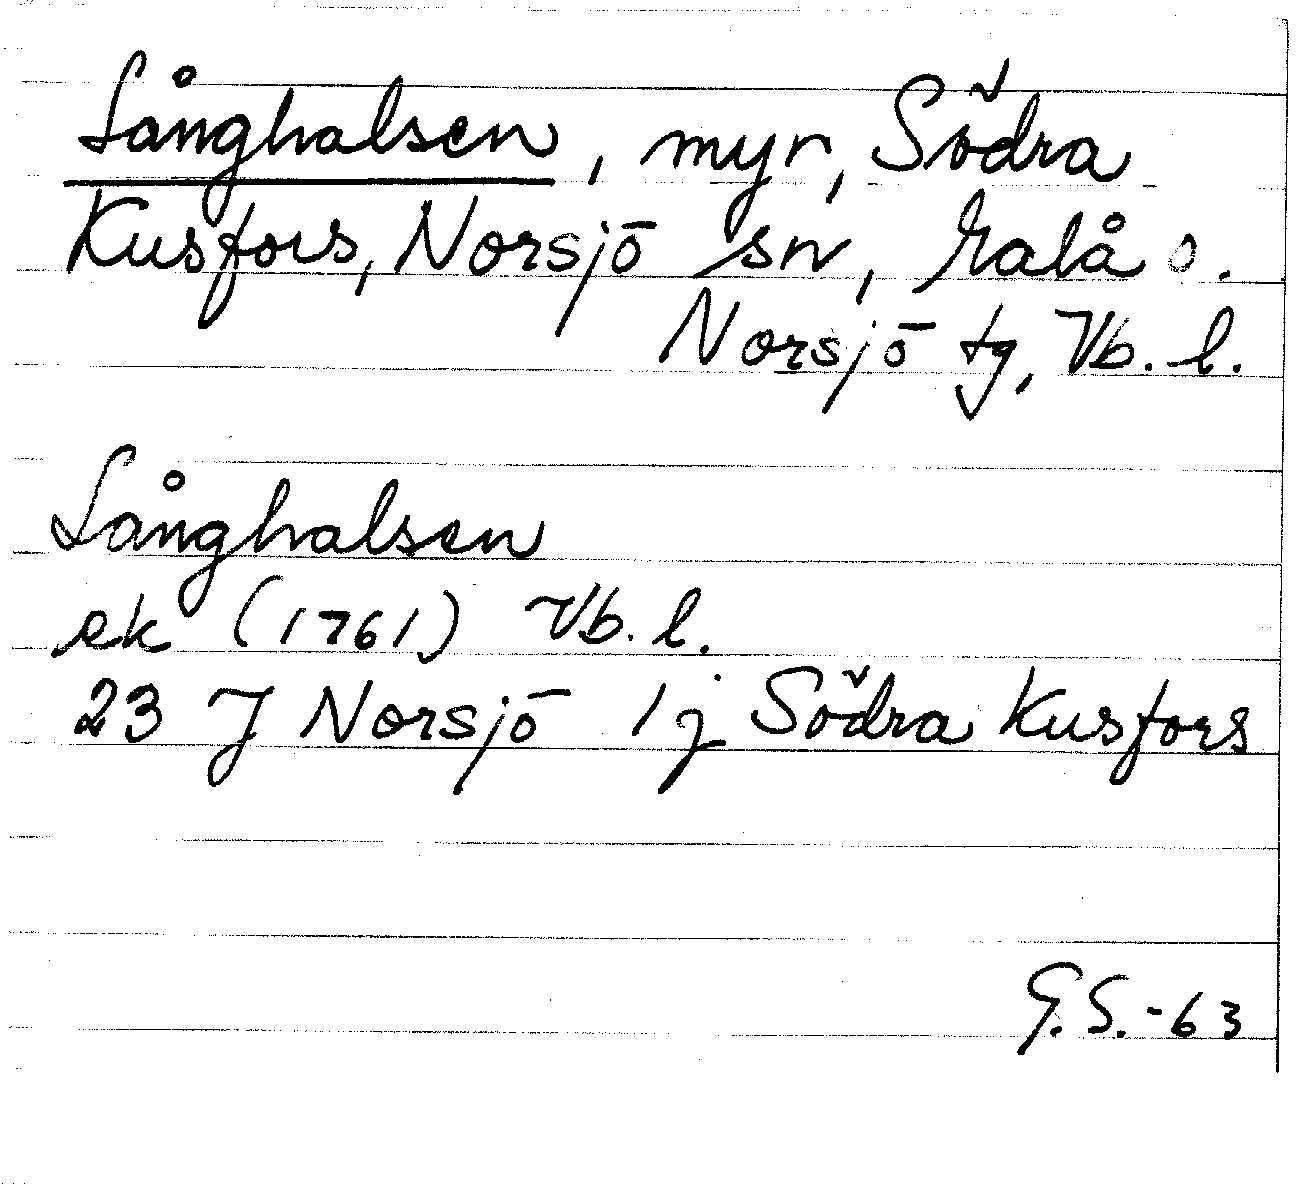 Långhalsen, myr, Södra
Kusfors, Norsjö sn, Malå o.
Norsjö tg, Vb. l.
Långhalsen
ek (1761) Vb. l.
23 J Norsjö 1 j Södra Kusfors
G.S.-63